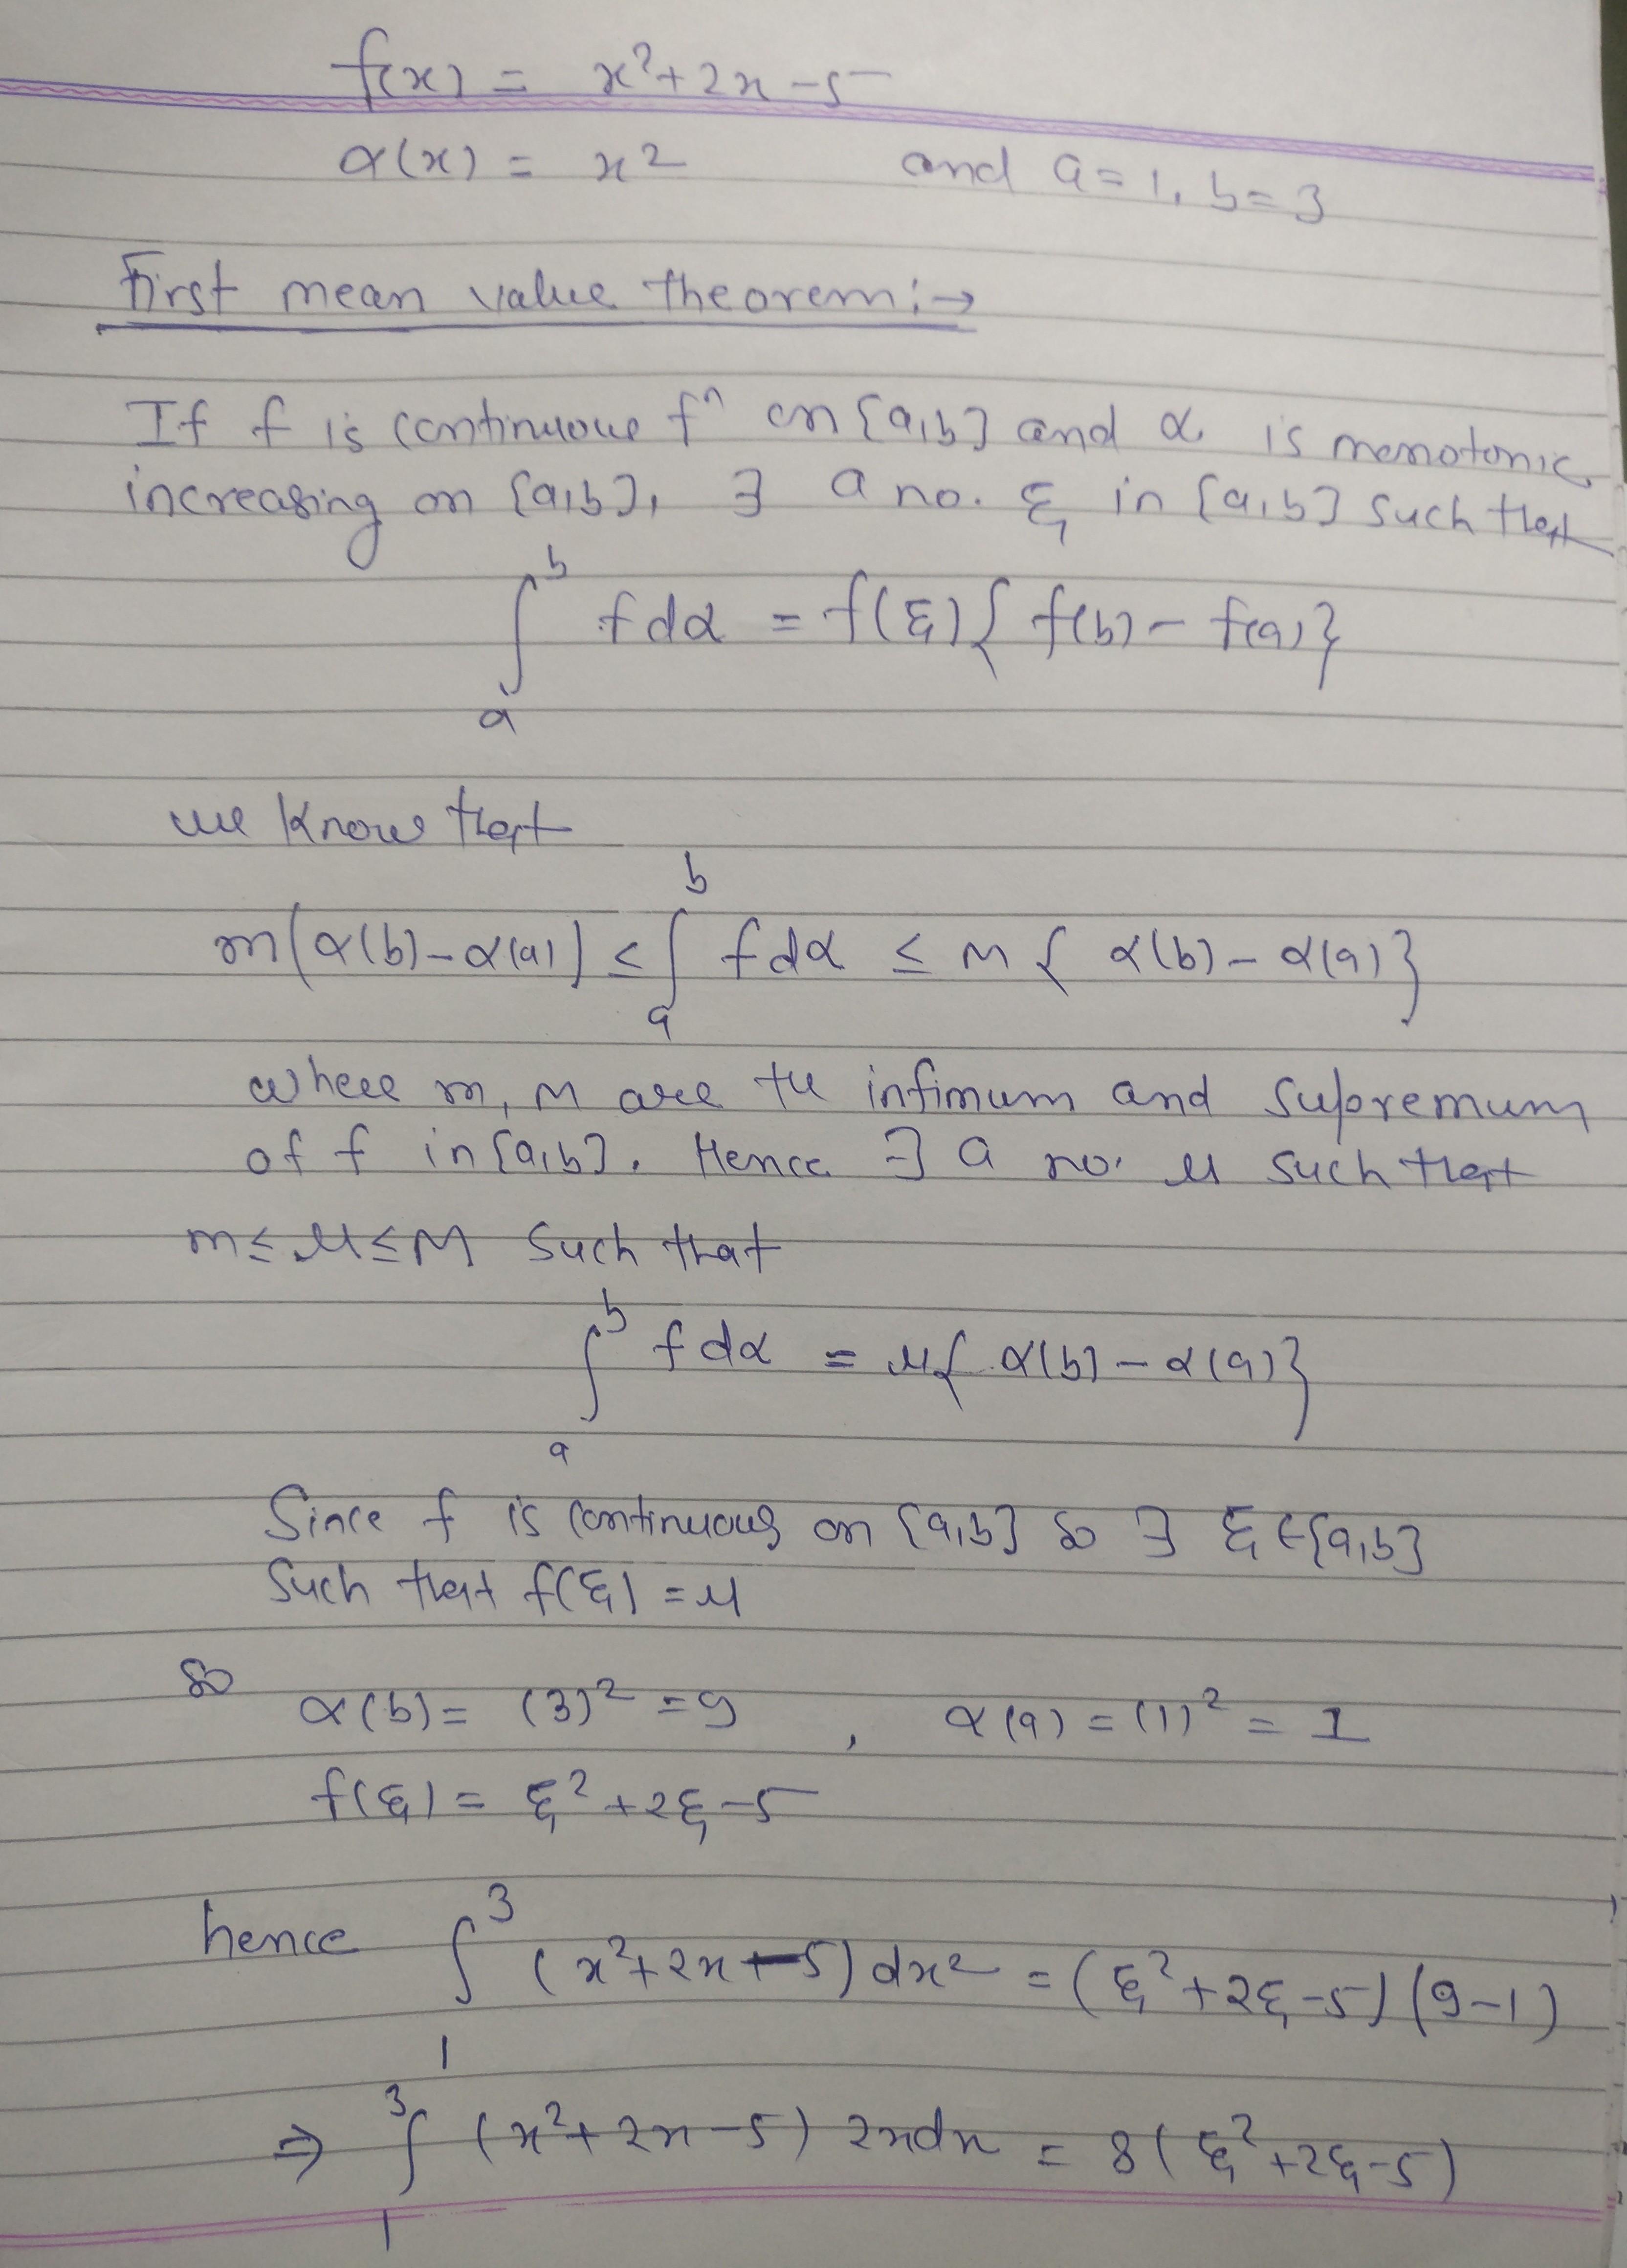 f(x) = x²+2x-5
α(x) = x² and a=1, b=3
First mean value theorem:→
If f is continuous fⁿ on [a,b] and α is monotonic
increasing on [a,b], ∃ a no. ξ in [a,b] such that
∫ₐᵇ f dα = f(ξ){ f(b) - f(a)}
we know that
m{α(b)-α(a)} ≤ ∫ₐᵇ f dα ≤ M { α(b) - α(a)}
where m, M are the infimum and supremum
of f in [a,b]. Hence ∃ a no. μ such that
m≤μ≤M such that
∫ₐᵇ f dα = μ{ α(b) - α(a)}
Since f is continuous on [a,b] so ∃ ξ∈[a,b]
such that f(ξ) = μ
so α(b) = (3)² = 9 , α(a) = (1)² = 1
f(ξ) = ξ²+2ξ-5
hence ∫₁³ (x²+2x-5) dx² = (ξ²+2ξ-5) (9-1)
⇒ ∫₁³ (x²+2x-5) 2xdx = 8(ξ²+2ξ-5)